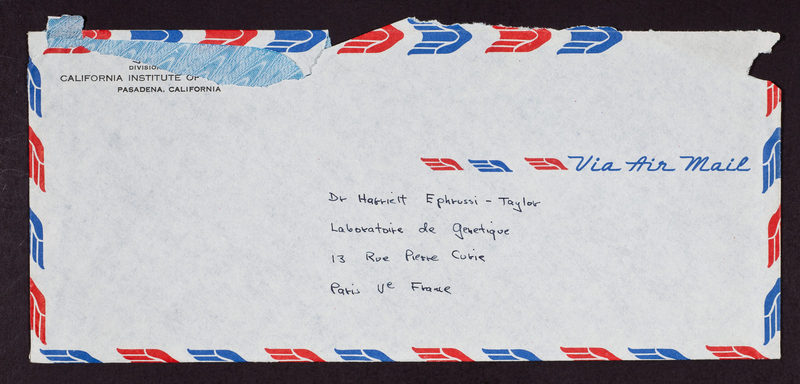 DIVISION
CALIFORNIA INSTITUTE OF
PASADENA, CALIFORNIA
Via Air Mail
Dr Harriett Ephrussi-Taylor
Laboratoire de Genetique
13 Rue Pierre Curie
Paris Ve France